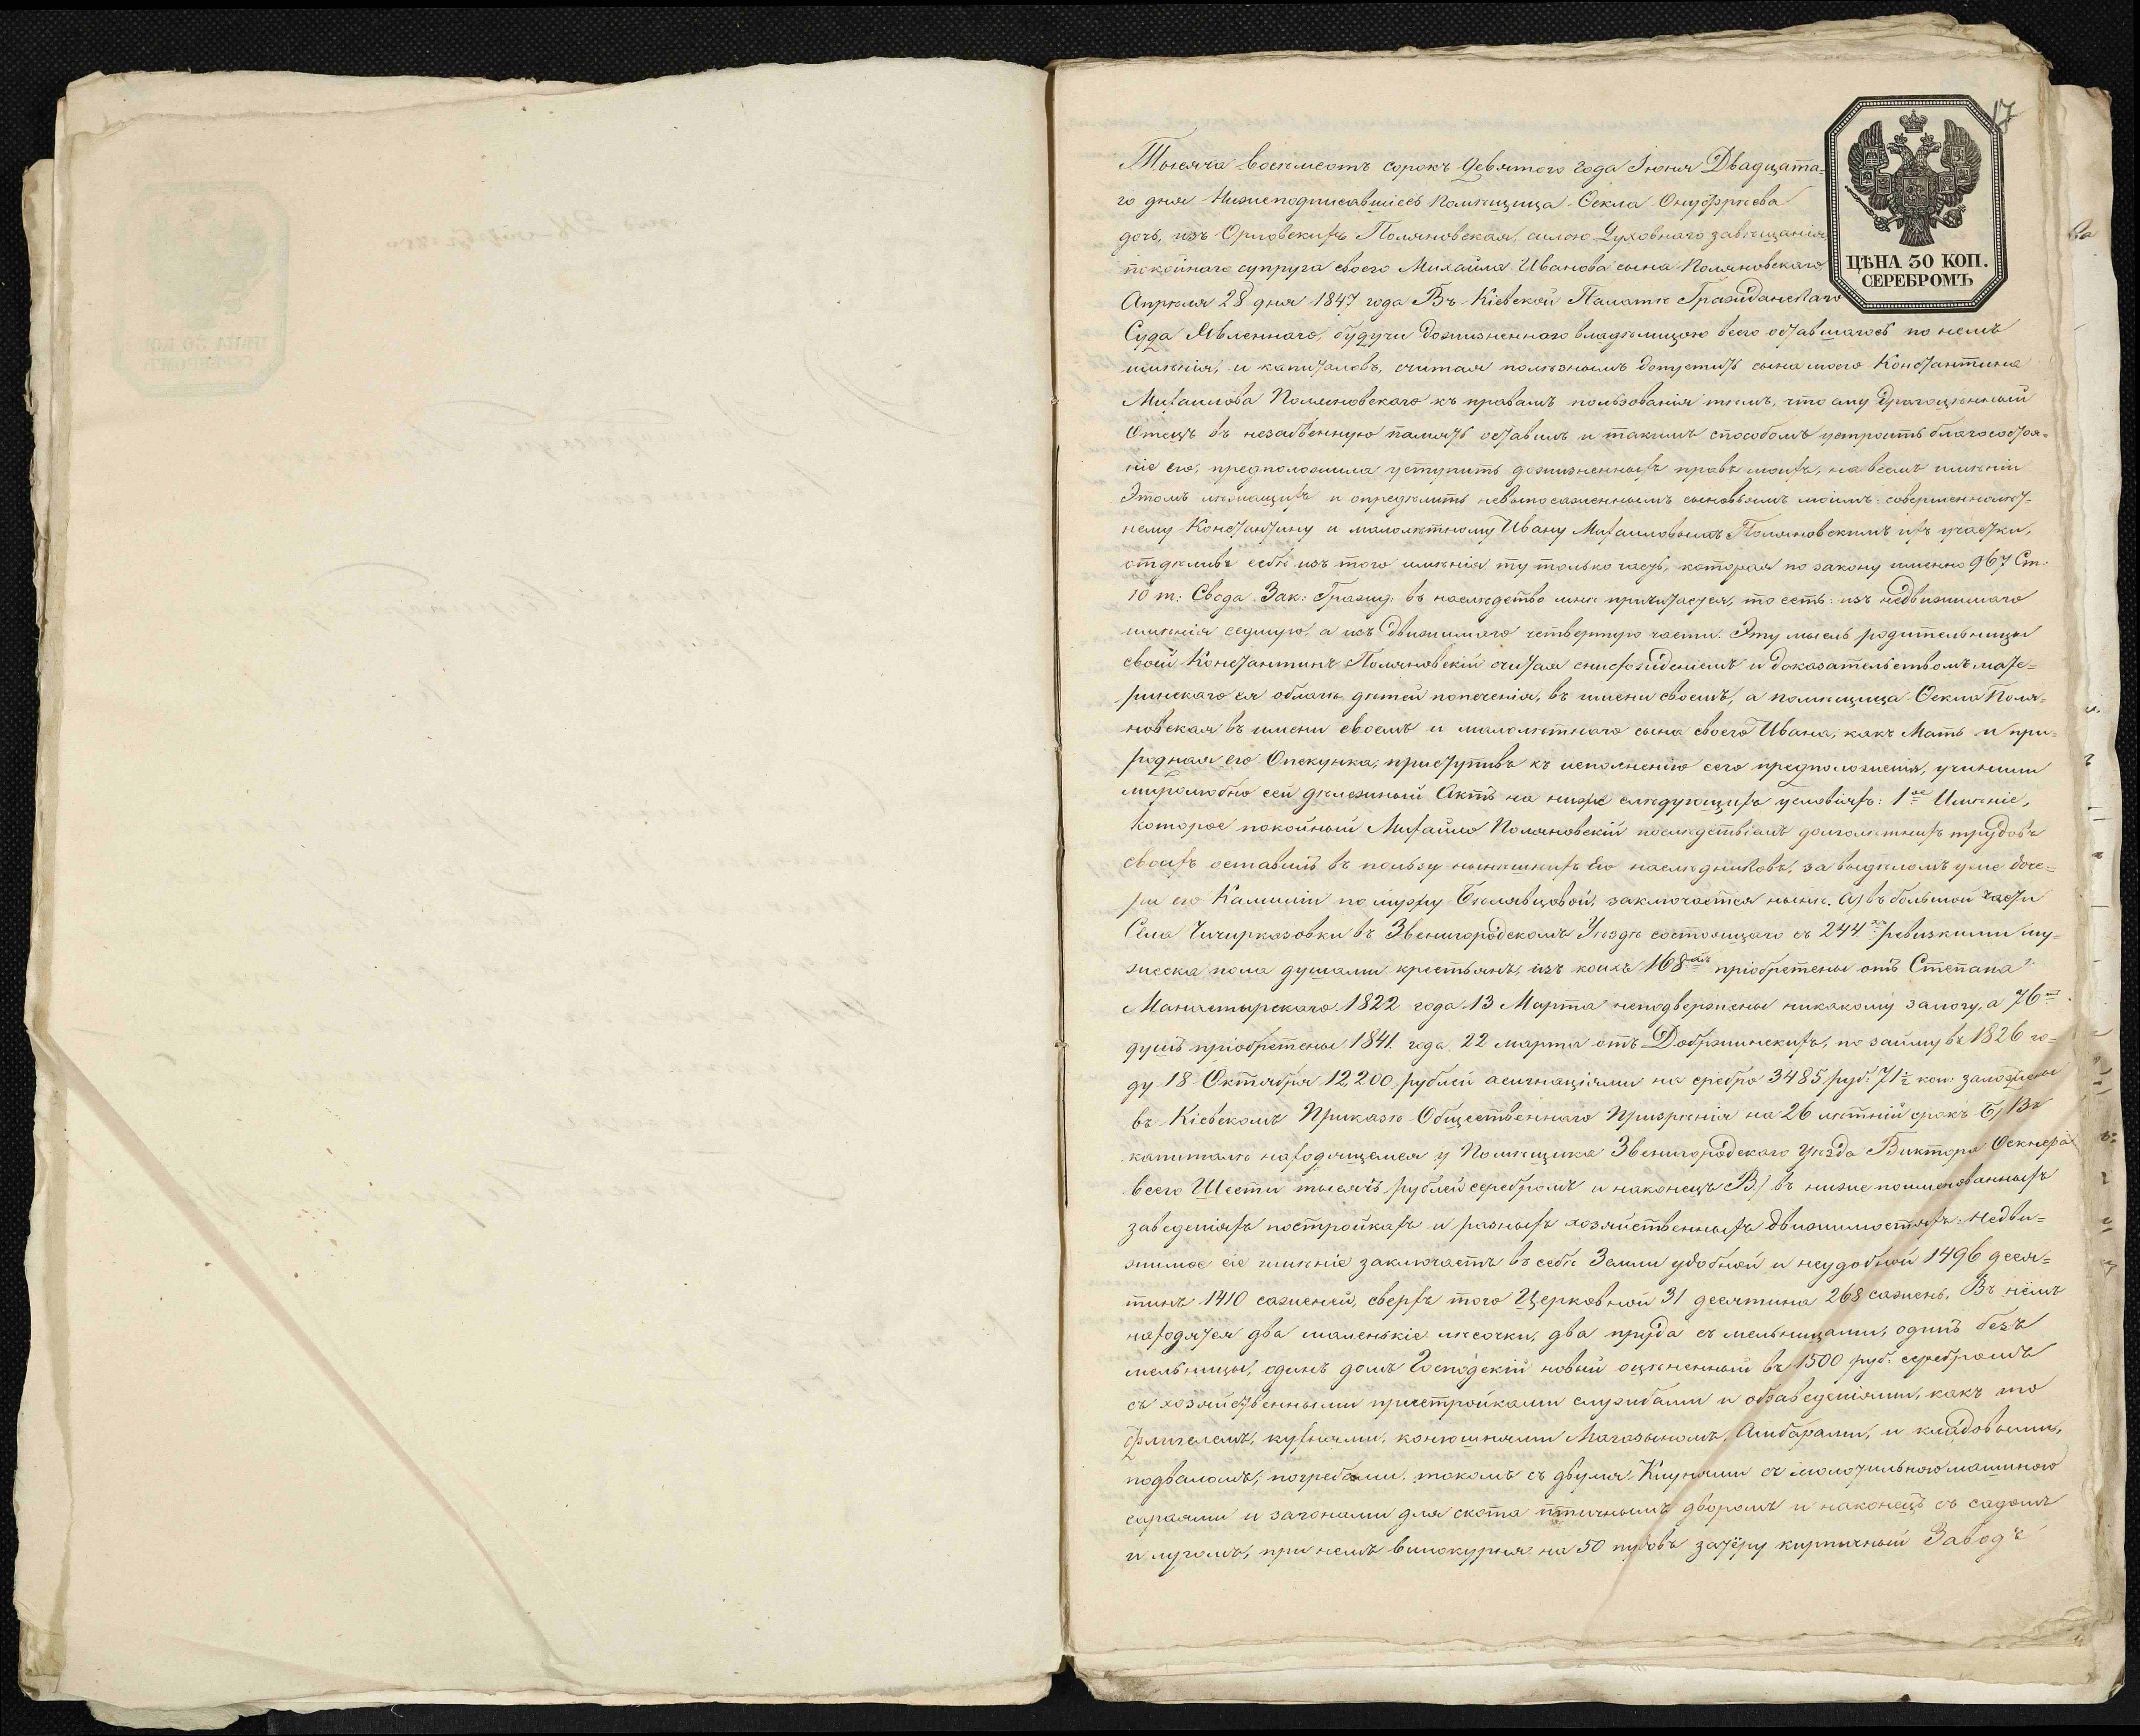 17
ЦѢНА 30 КОП.
СЕРЕБРОМЪ
Тысяча восемсотъ сорокъ девятого года Іюня Двадцата-
го дня Нижеподписавшіесь Помѣщица Өекла Онуфріева
дочь, изъ Орловскихъ Поляновская, силою Духовнаго завѣщанія,
покойнаго супруга своего Михайла Иванова сына Поляновскаго
Апрѣля 28 дня 1847 года Въ Кіевской Палатѣ Гражданскаго
Суда Явленнаго, будучи дожизненною владѣлицою всего оставшагось по немъ
имѣнія, и капиталовъ, считая полезнымъ допустить сына моего Константина
Михаилова Поляновского къ правамъ пользованія тѣмъ, что ему драгоцѣнный
Отецъ въ незабвенную память оставилъ и такимъ способомъ устроить благосостоя-
ніе его, предположила уступить дожизненныхъ правъ моихъ, на всемъ имѣніи
Этомъ лежащихъ и опредѣлить невыпосаженнымъ сыновьямъ моимъ: совершеннолѣт-
нему Константину и малолѣтному Ивану Михаиловымъ Поляновскимъ ихъ участки,
отдѣливъ себѣ изъ того имѣнія ту только часть, которая по закону именно 967 Ст.
10 т: Свода Зак: Гражд: въ наслѣдство мнѣ причитается, то есть: изъ недвижимаго
имѣнія седмую, а изъ движимаго четвертую части. Эту мысль родительницы
своей Константинъ Поляновскій считая снисхожденіемъ и доказательствомъ мате-
ринскаго ея о благѣ дѣтей попеченія, въ имени своемъ, а помѣщица Өекла Поля-
новская въ имени своемъ и малолѣтнаго сына своего Ивана, какъ Мать и при-
родная его Опекунка, приступивъ къ исполненію сего предположенія, учинили
миролюбно сей дѣлежный Актъ на ниже слѣдующихъ условіяхъ: 1ое Имѣніе,
которое покойный Михайло Поляновскій послѣдствіемъ долголѣтнихъ трудовъ
своихъ оставилъ въ пользу нынѣшнихъ Его наслѣдниковъ, за выдѣломъ уже доче-
ри его Камиліи по мужу Бѣлявцовой, заключается нынѣ. А) въ большой части
Села Чичирказовки въ Звенигородскомъ Уѣздѣ состоящаго съ 244 ревизкими му-
жеска пола душами крестьянъ, изъ коихъ 168 пріобретены отъ Степана
Манастырскаго 1822 года 13 Марта неподвержены никакому залогу, а 76
душъ пріобретены 1841 года 22 марта отъ Добржинскихъ, по займу въ 1826 го-
ду 18 Октября 12200 рублей асигнаціями на сребро 3485 руб: 71½ коп: заложены
въ Кіевскомъ Приказѣ Общественнаго Призрѣнія на 26 лѣтній срокъ Б) Въ
капиталѣ находящемся у Помѣщика Звенигородскаго Уѣзда Виктора
всего Шести тысячъ рублей серебромъ и наконецъ В) въ ниже поименованныхъ
заведеніяхъ постройкахъ и разныхъ хозяйственныхъ движимостяхъ. Недви-
жимое сіе имѣніе заключаетъ въ себѣ Земли удобной и неудобной 1496 деся-
тинъ 1410 саженей, сверхъ того Церковной 31 десятина 268 сажень. Въ нёмъ
находятся два маленькіе лѣсочки, два пруда съ мельницами, одинъ безъ
мельницы, одинъ домъ Господскій новый оцѣненный въ 1500 руб: серебромъ
съ хозяйственными пристройками службами и обзаведеніями, какъ то
флигелемъ, кухнями, конюшнями Магазыномъ, Амбарами, и кладовыми,
подваломъ, погребами, токомъ съ двумя Клунями съ молотильною машиною
сараями и загонами для скота птичнымъ дворомъ и наконецъ съ садомъ
и лугомъ, при немъ винокурня на 50 пудовъ затёру кирпичный Заводъ